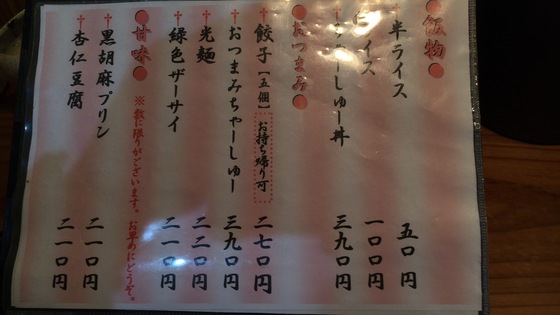 ●飯物●
†半ライス 五〇円
イス 一〇〇円
ーしゅー丼 三九〇円
●おつまみ●
†餃子【五個】お持ち帰り可 二七〇円
†おつまみちゃーしゅー 三九〇円
†光麺 二二〇円
†緑色ザーサイ 二一〇円
●甘味●※数に限りがございます。お早めにどうぞ。
†黒胡麻プリン 二一〇円
†杏仁豆腐 二一〇円